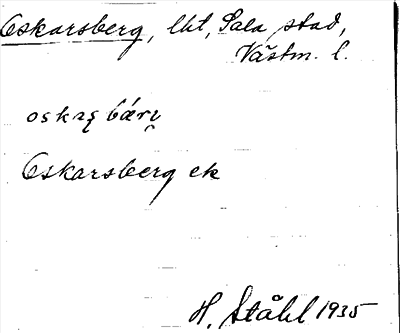 Oskarsberg, lht, Sala stad,
Västm. l.
Oskarsberg ek
H. Ståhl 1935